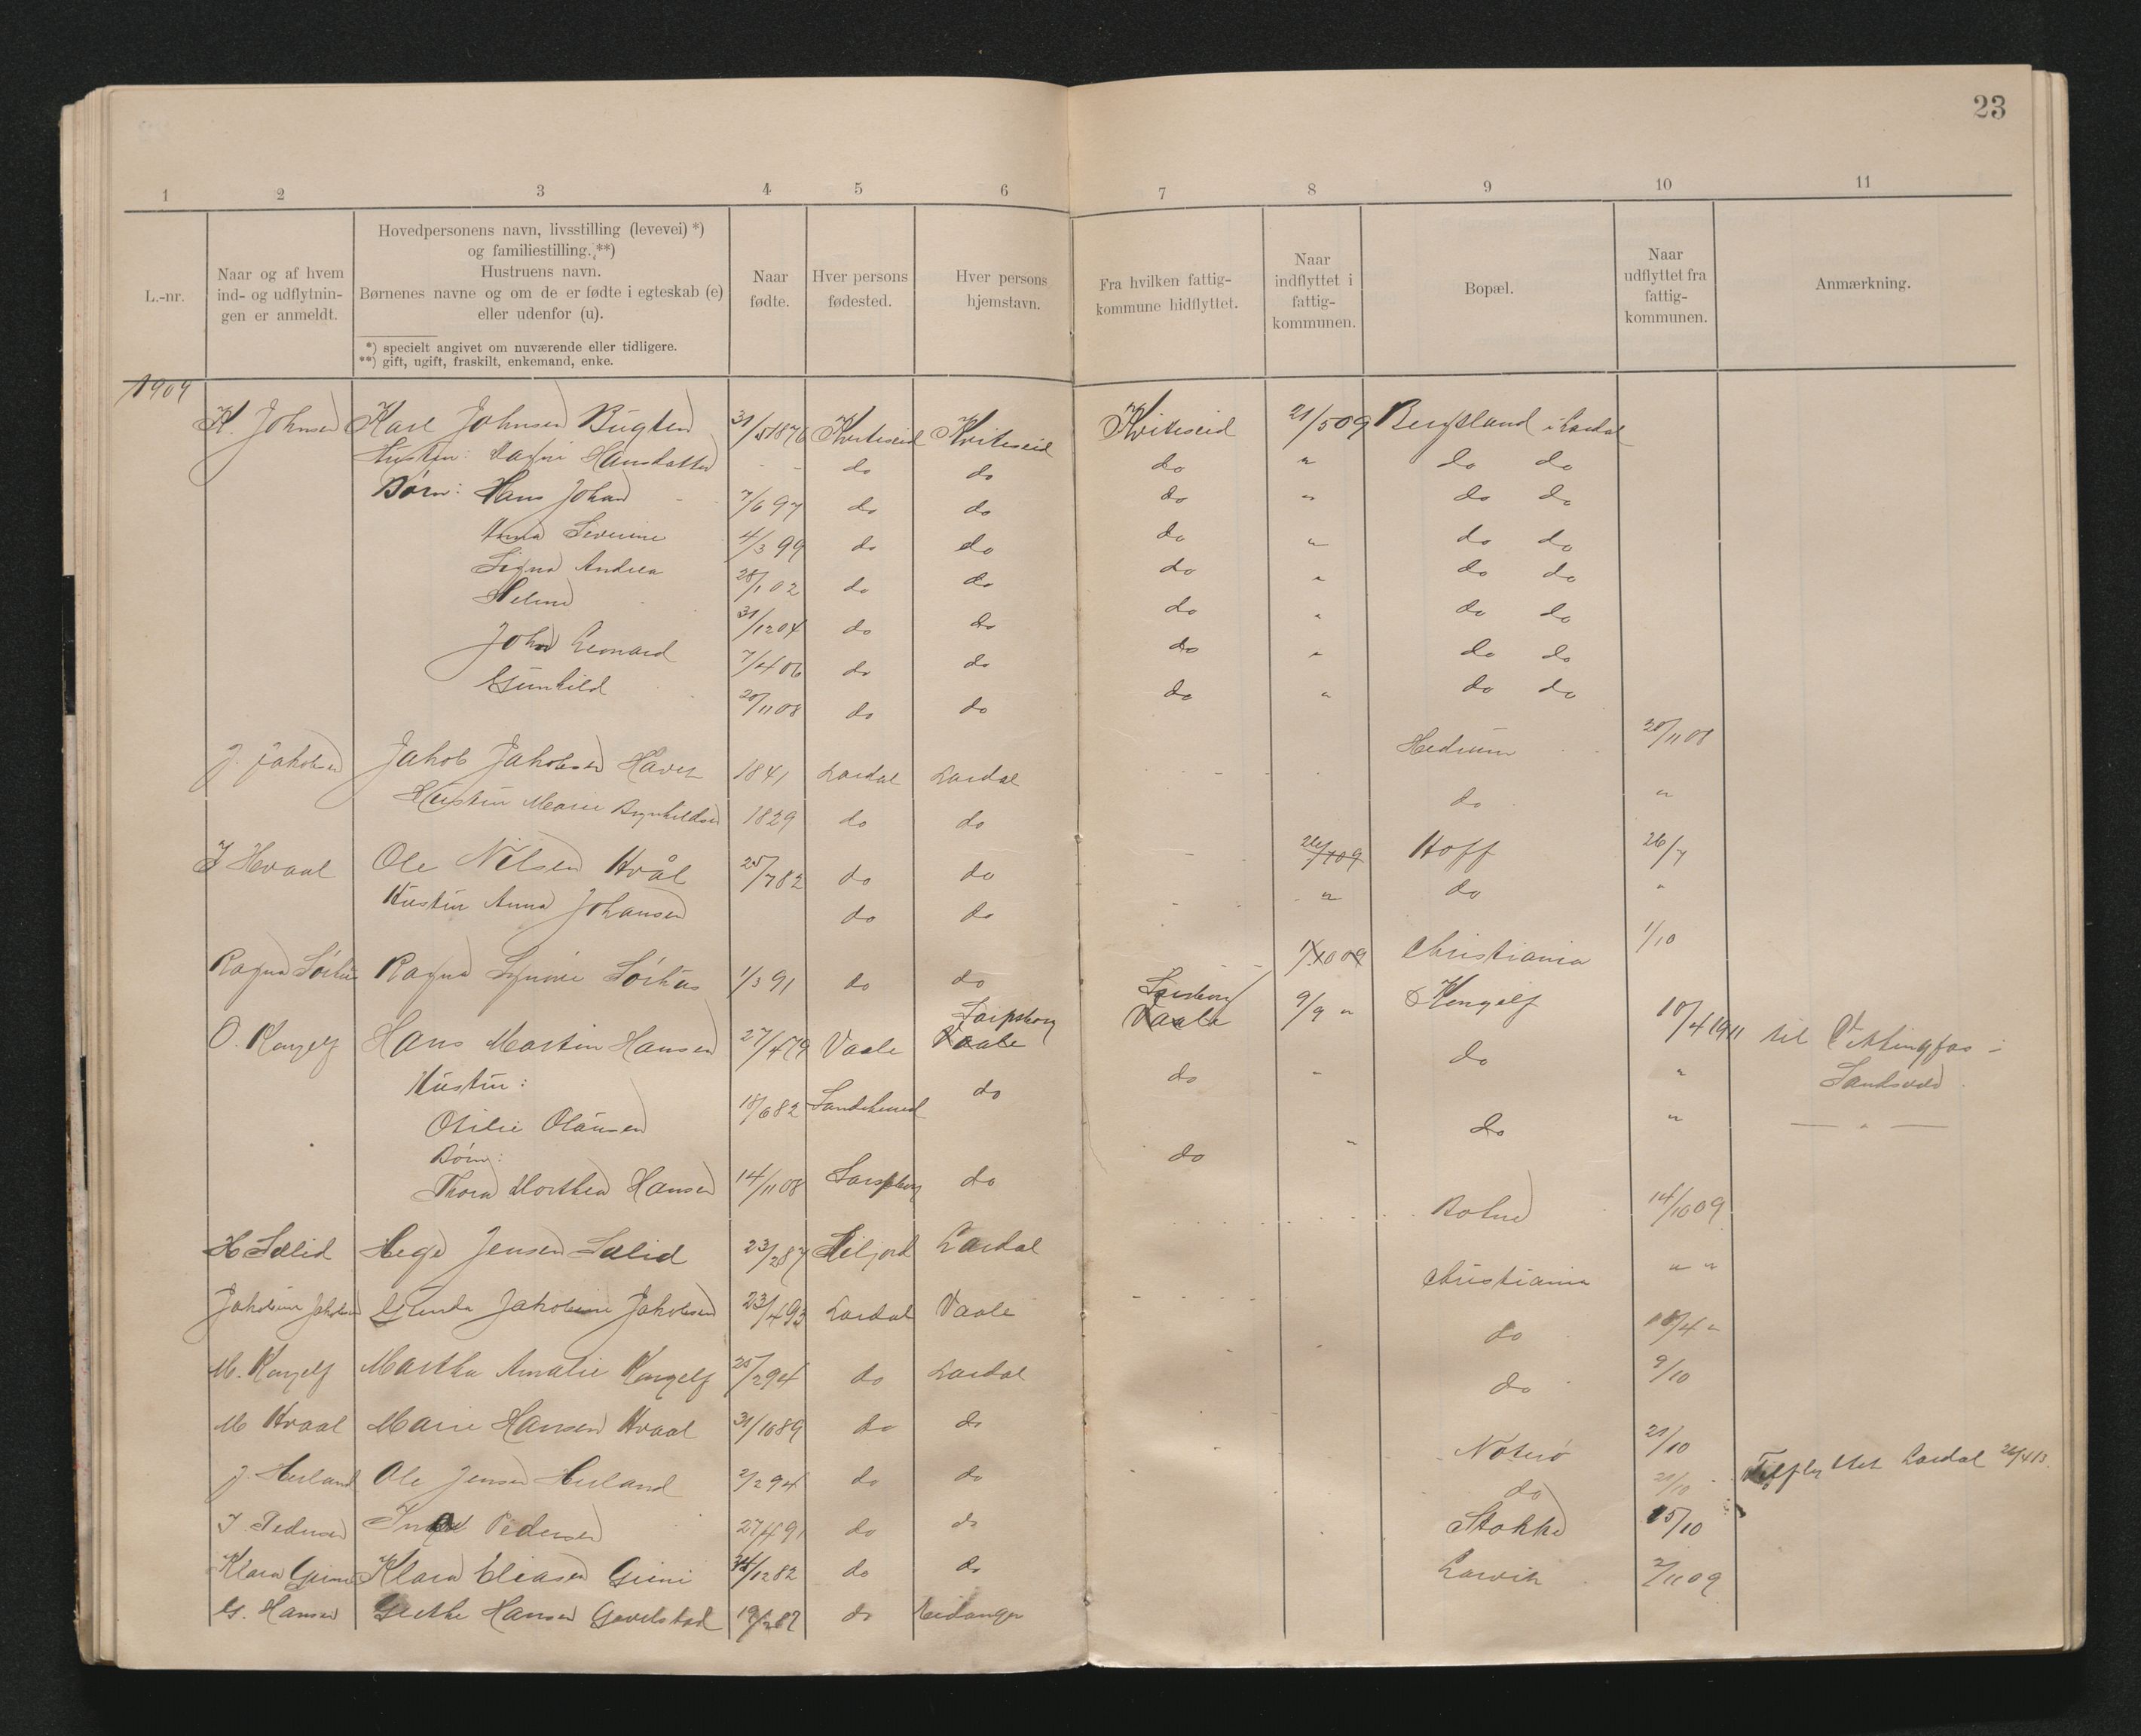 23
1 2 3 4 5 6 7 8 9 10 11
L.-nr.
Naar og af hvem
ind- og udflytnin-
gen er anmeldt.
Hovedpersonens navn, livsstilling (levevei) *)
og familiestilling. **)
Hustruens navn.
Børnenes navne og om de er fødte i egteskab (e)
eller udenfor (u).
*) specielt angivet om nuværende eller tidligere.
**) gift, ugift, fraskilt, enkemand, enke.
Naar
fødte.
Hver persons
fødested.
Hver persons
hjemstavn.
Fra hvilken fattig-
kommune hidflyttet.
Naar
indflyttet i
fattig-
kommunen.
Bopæl.
Naar
udflyttet fra
fattig-
kommunen.
Anmærkning.
1909
K. Johnsen Karl Johnsen Bugten 31/5 1876 Kviteseid Kviteseid Kviteseid 21/5 09 Bergsland i Lardal
Hustru: Hansdatter - - do do do " do do
Børn: Hans Johan - - 7/6 97 do do do " do do
Anna Severine 4/3 99 do do do " do do
Signe Andrea 28/1 02 do do do " do do
Helene 31/12 04 do do do " do do
John Leonard 7/4 06 do do do " do do
Gunhild 20/11 08 do do do " do do
J. Jakobsen Jakob Jakobsen Haven 1841 Lardal Lardal - - - Hedrum 30/11 08
Hustru Marie Brynhildsen 1829 do do do "
J Hvaal Ole Nilsen Hvål 25/7 82 do do - 26/7 09 Hoff 26/7
Hustru Anna Johansen do do - - " do "
Ragna Sørhus Ragna Sørhus 1/3 91 do do - 1/10 09 Christiania 1/10
O. Kongelf Hans Martin Hansen 27/4 79 Vaale Sarpsborg Vaale Sarpsborg Vaale 9/9 " Kongelf 18/4 1911 til i
Hustru: do do - do " Sandsvær
Otilie Olausen 18/6 82 Sandeherred
Børn:
Thora Dorthea Hansen 14/11 08 Sarpsborg do do " do " — " —
H Sælid Hege Jensen Sælid 23/2 87 Siljord Lardal Botne 14/10 09
Jakobine Jakobsen Gunda Jakobine Jakobsen 23/4 93 Lardal Vaale - - - Christiania " "
M. Kongelf Martha Amalie Kongelf 25/2 94 do Lardal - - do 18/4 "
M Hvaal Marie Hansen Hvaal 31/10 89 do do - do 9/10
J. Herland Ole Jensen Herland 2/2 94 do do - - Nøterø 21/10
J. Pedersen Pedersen 27/4 91 do do - do 21/10 - Tilflyttet Lardal 26/4 13.
Klara Grinie Klara Eliasen Grini 14/12 82 do do Stokke 15/10
G. Hansen Grethe Hansen Gavelstad 19/2 87 do Eidanger Larvik 2/11 09